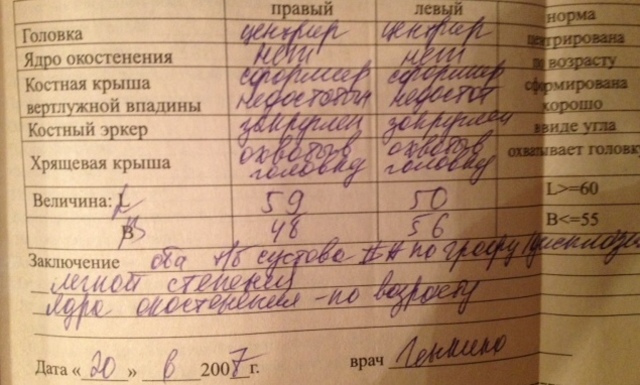 правый левый норма
Головка центрир центрир центрирована
Ядро окостенения нет нет по возрасту
Костная крыша вертлужной впадины сформир недостаточн сформир недостат сформирована хорошо
Костный эркер закруглен закруглен в виде угла
Хрящевая крыша охватыв головку охватыв головку охватывает головку
Величина: L 59 50 L>=60
B 48 56 B<=55
Заключение оба т/б сустава по графу
легкой степени
ядра окостенения - по возрасту
Дата «20» 6 2007 г. врач